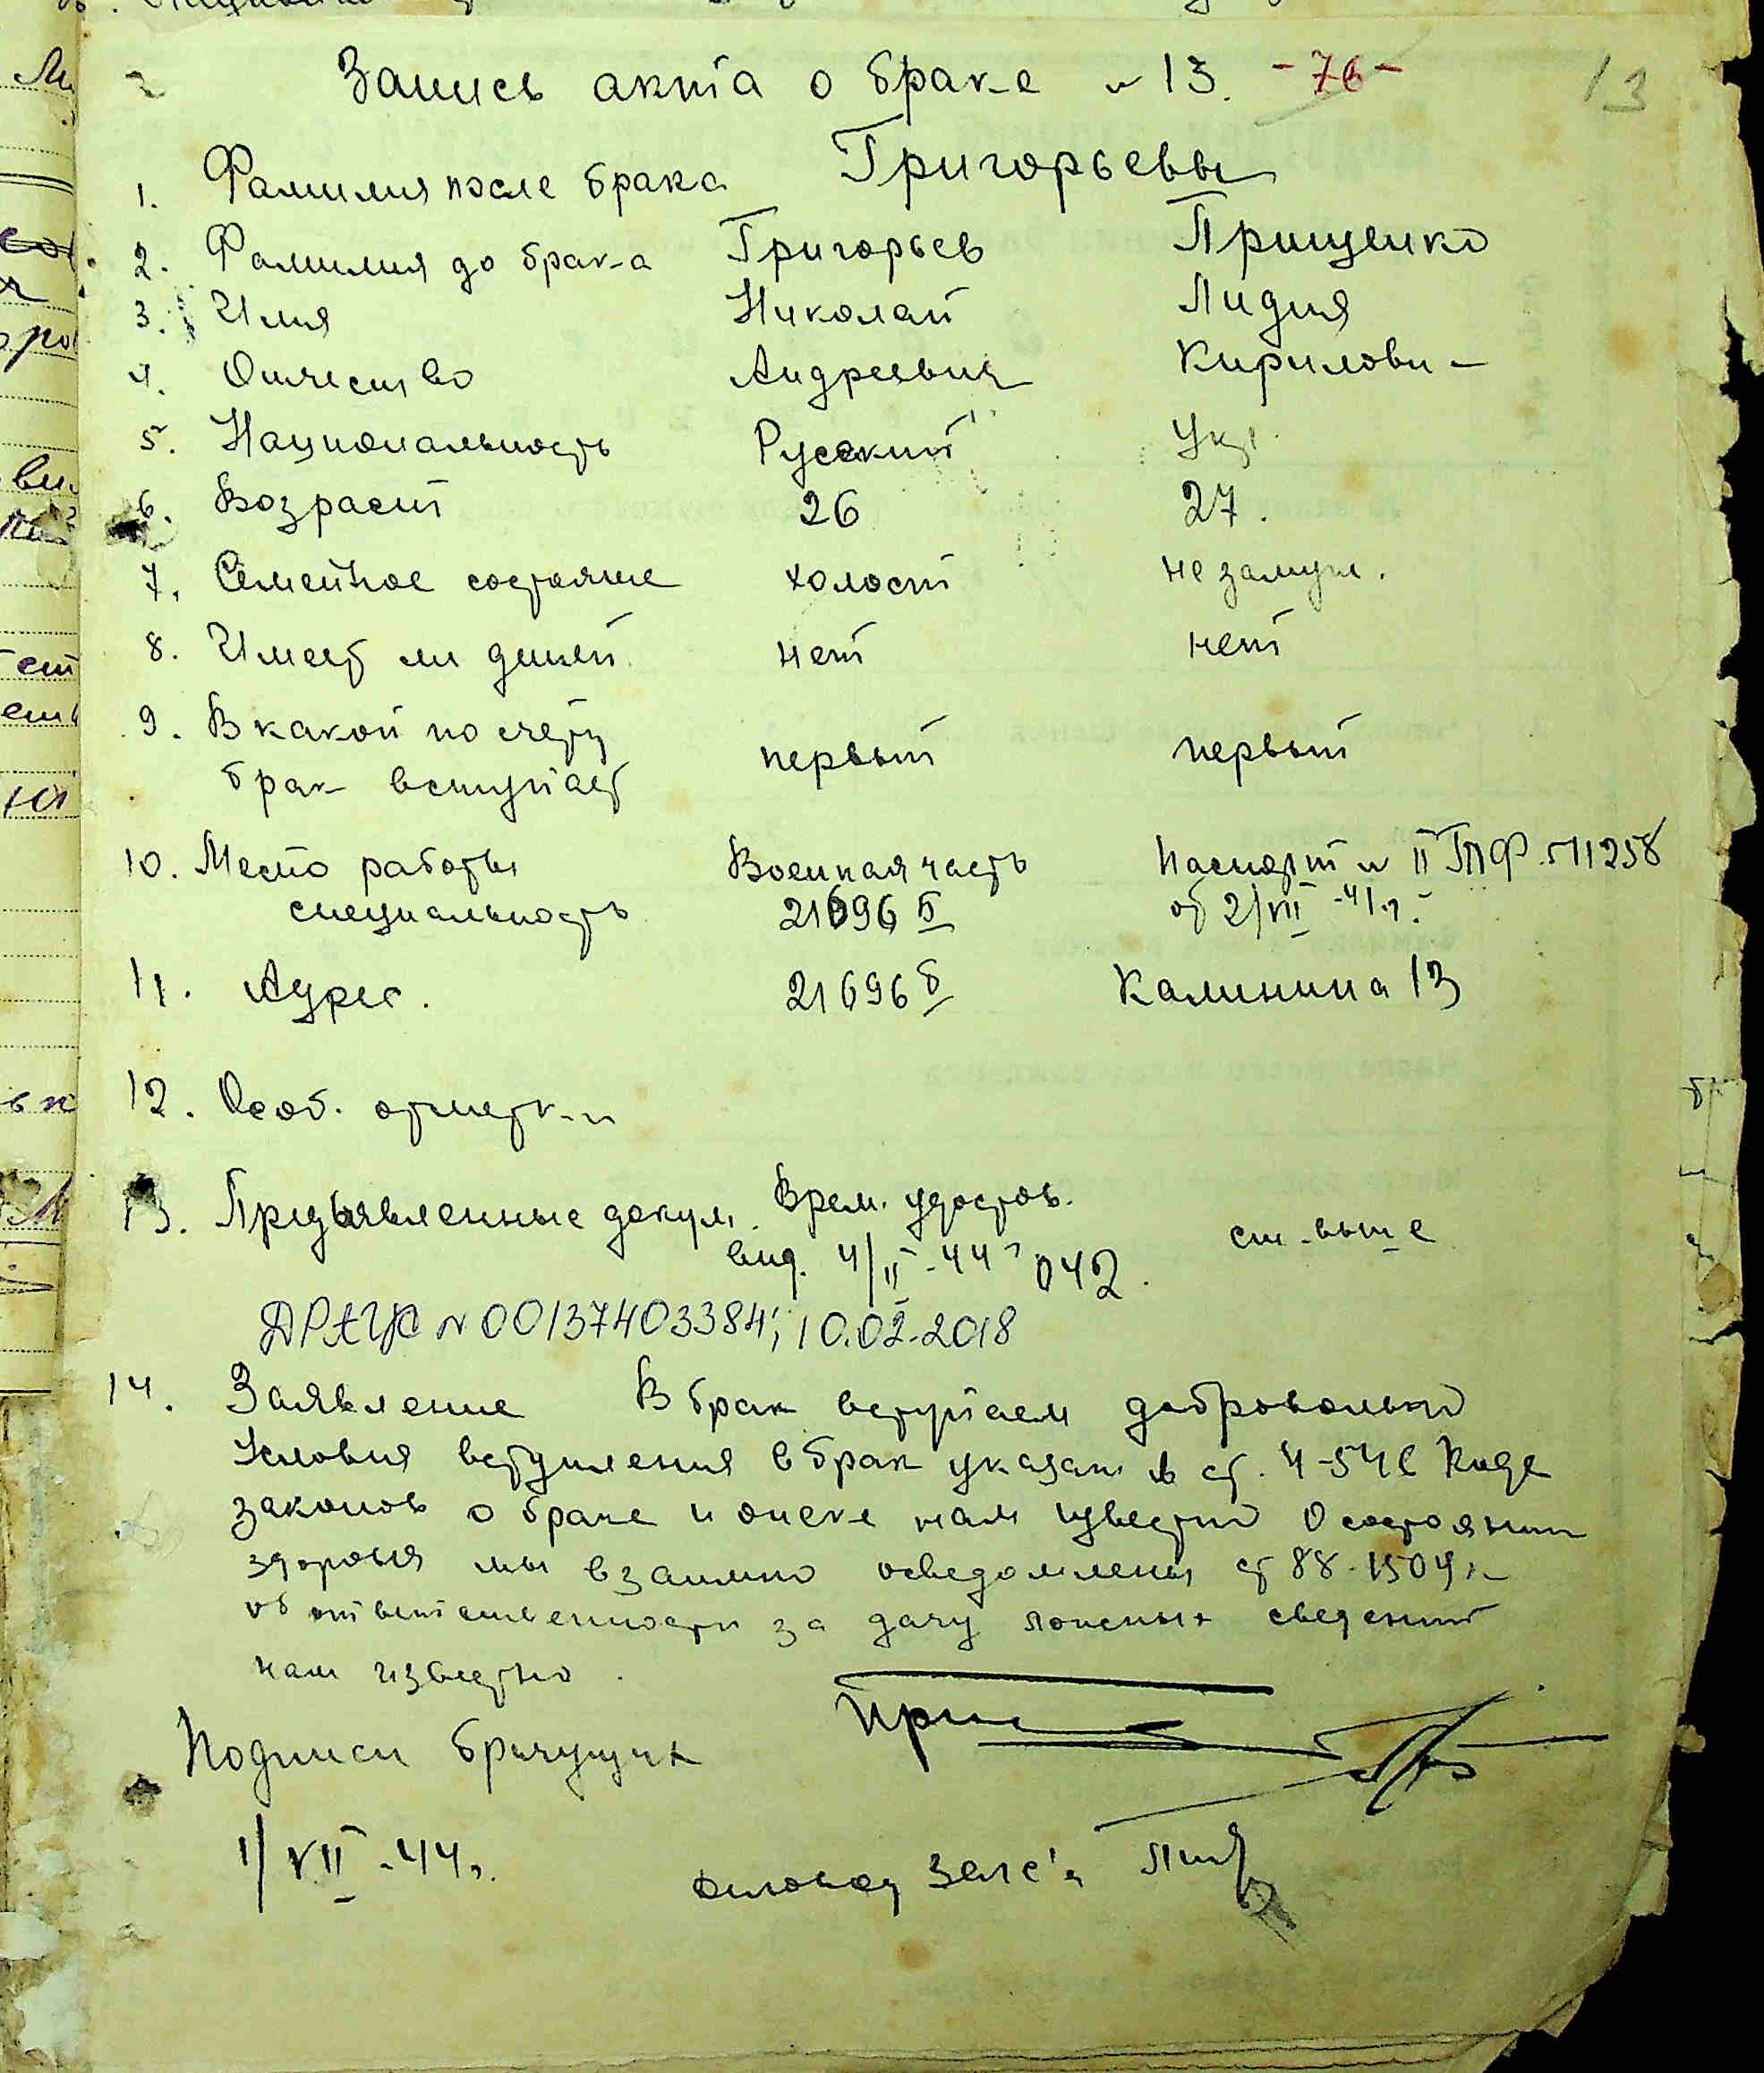 Запись акта о браке № 13. -76- 13
1. Фамилия после брака Григорьевы
2. Фамилия до брака Григорьев Прищенко
3. Имя Николай Лидия
4. Отчество Андреевич Кирилови-
5. Национальность Русский Укр.
6. Возраст 26 27.
7. Семейное состояние холост не замуж.
8. Имеет ли детей нет нет
9. В какой по счету
брак вступает первый первый
10. Место работы Военная часть Паспорт № II ГПФ 511258
специальность 21696 Б от 2/VII-41 г.
11. Адрес. 21696 Б Калинина 13
12. Особ. отметки
13. Предъявленные докум. Врем. удостов. см. выше
вид. 4/II-44 г 042.
ДРАЦС № 00137403384; 10.02.2018
14. Заявление В брак вступаем добровольно
Условия вступления в брак указан. в ст. 4-5 Кодe
законов о браке и опеке нам известно О состоянии
здоровья мы взаимно осведомлены ст 88-150 УК
об ответственности за дачу ложных сведений
нам известно.
Подписи брачущих При
1/VII-44 г. Загс'а